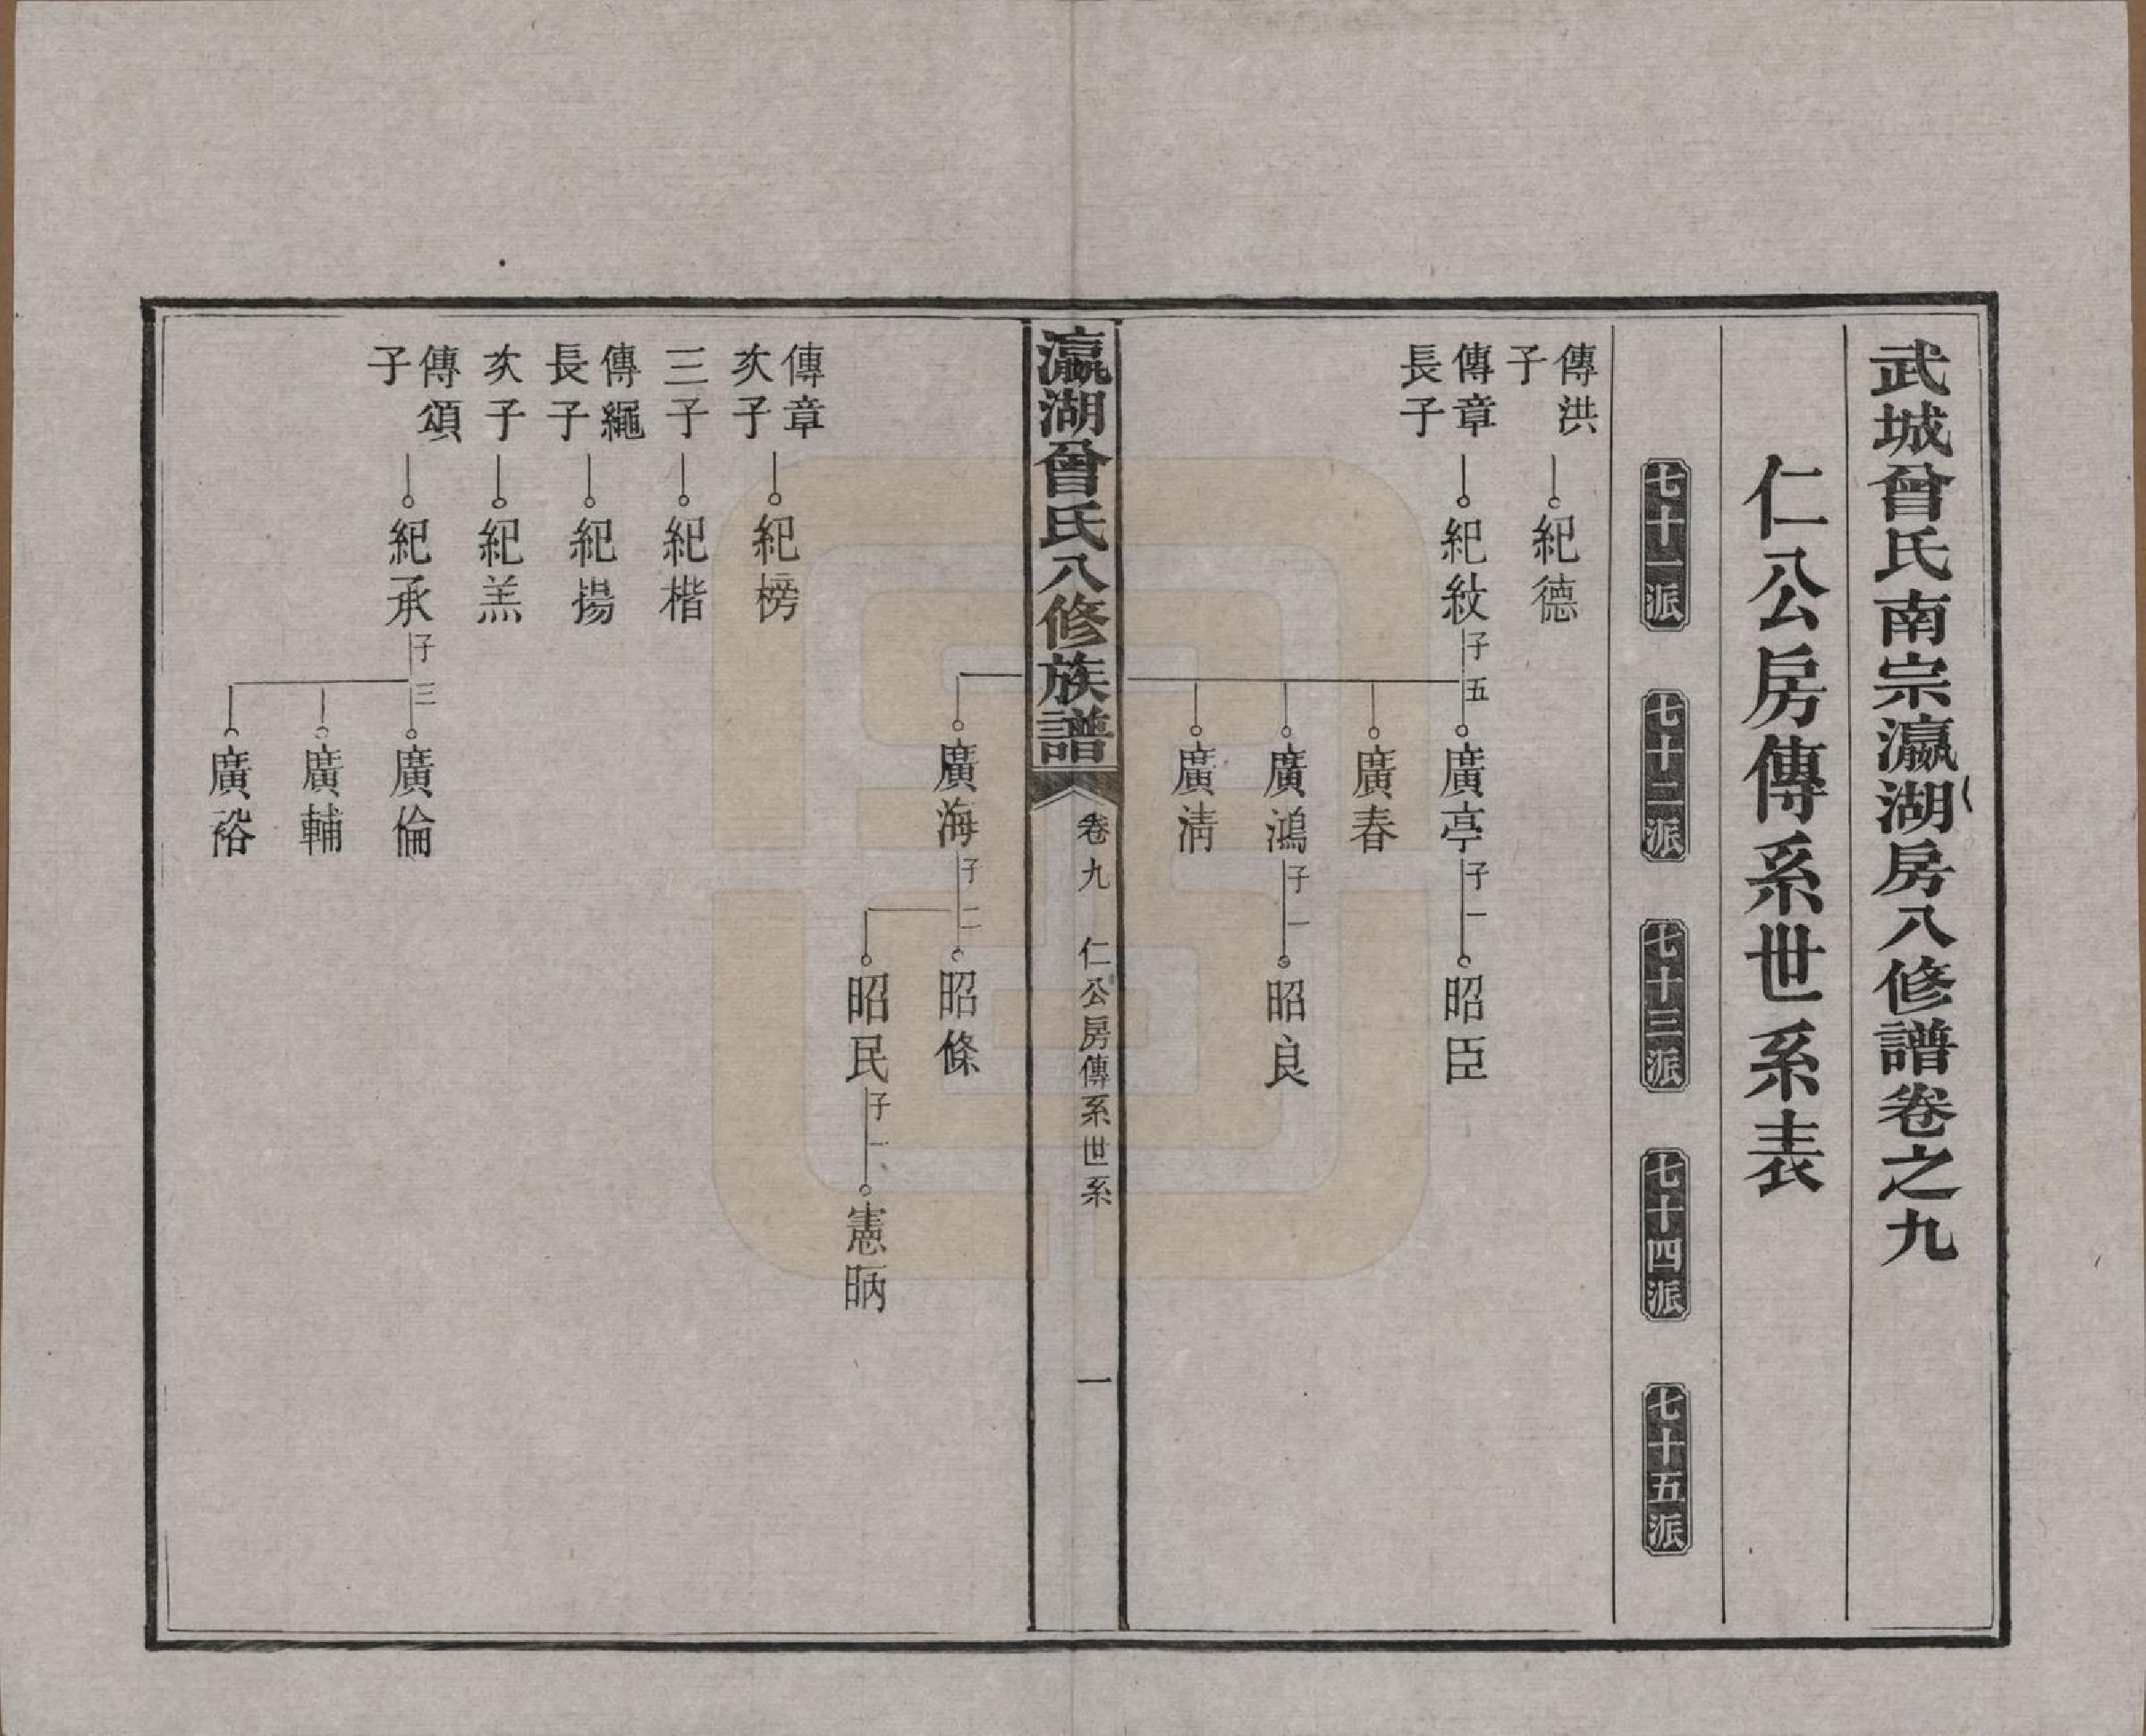 武城曾氏南宗瀛湖房八修譜卷之九
仁公房傳系世系表
七十一派
七十二派
七十三派
七十四派
七十五派
傳洪
子
紀德
傳章
長子
紀紋
子五
廣亭
子一
昭臣
廣春
廣鴻
子一
昭良
廣淸
瀛湖曾氏八修族譜
卷九
仁公房傳系世系
一
廣海
子二
昭條
昭民
子一
憲昞
傳章
次子
紀榜
三子
紀楷
傳繩
長子
紀揚
次子
紀羔
傳頌
子
紀承
子三
廣倫
廣輔
廣裕